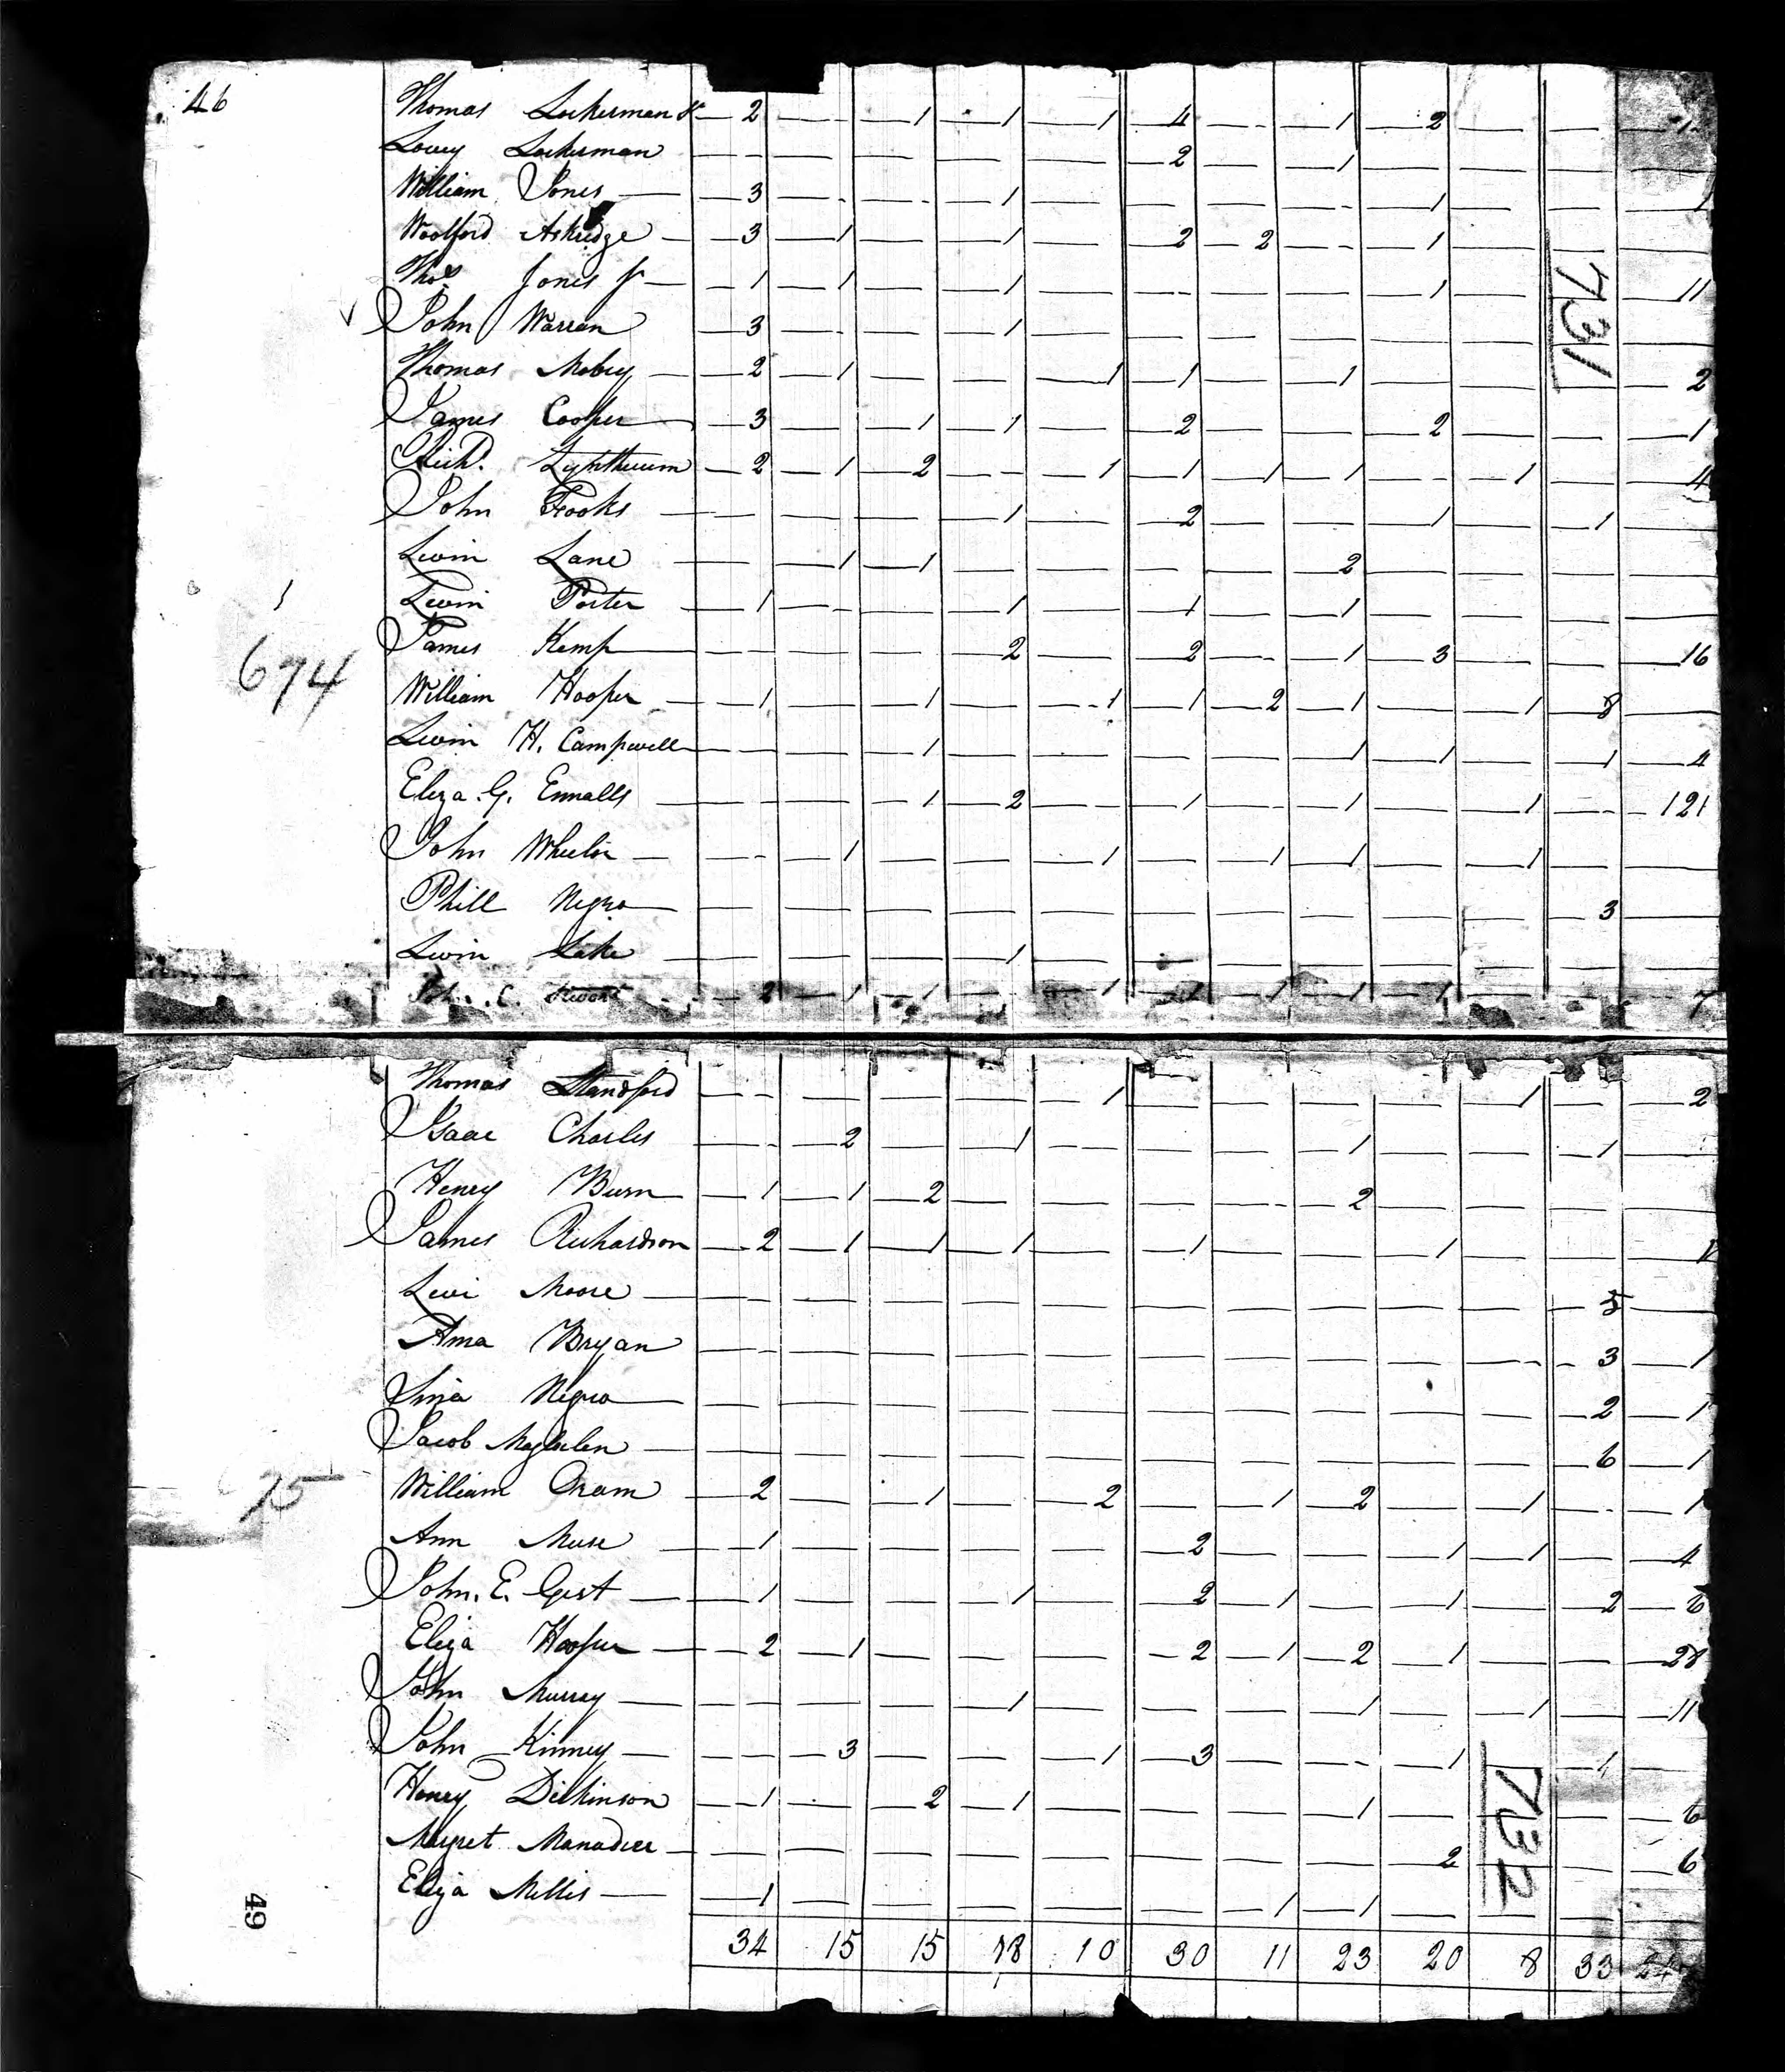 46
Thomas Lockerman Sr — 2 — 1 — 1 — 1 — 4 — 1 — 2 — —
Lovey Lockerman — — — — — 2 — 1 — — — —
William Jones — 3 — — — 1 — — — — — 1 — — 1
Woolford Askridge — 3 — 1 — — 1 — — 2 — 2 — — 1 — — —
Thos Jones Jr — 1 — 1 — — 1 — — — — — 1 — — 11
John Warren — 3 — — — 1 — — — — — — — —
Thomas Mobry — 2 — 1 — — — 1 — 1 — — 1 — — — 2
James Cooper — 3 — — 1 — 1 — — 2 — — — 2 — — 1
Richd. Lyhthurum — 2 — 1 — 2 — — 1 — 1 — 1 — 1 — — 1 — — 4
John Fooks — — — — 1 — — 2 — — — 1 — — 1 —
Levin Lane — — 1 — 1 — — — — — 2 — — — —
1
Levin Porter — 1 — — — 1 — — 1 — — 1 — — — —
James Kemp — — — — 2 — — 2 — — 1 — 3 — — — 16
674
William Hooper — 1 — — 1 — — 1 — 1 — 2 — 1 — — 1 — 8 —
Levin H. Campwell — — — 1 — — — — — 1 — 1 — — 1 — 4
Eliza. G. Ennalls — — — 1 — 2 — — 1 — — 1 — — 1 — — 121
John Wheelor — — 1 — — — 1 — — 1 — 1 — — 1 — —
Phill Negro — — — — — — — — — — 3 —
Levin Lake — — — — 1 — — — — — — — —
C. Stewart — 2 — 1 — 1 — — 1 — 1 — 1 — 1 — 1 — — — 7
731
Thomas Standford — — — — — 1 — — — — — 1 — — 2
Isaac Charles — — 2 — — 1 — — — — 1 — — — 1 —
Henry Burn — 1 — 1 — 2 — — — — — 2 — — — —
James Richardson — 2 — 1 — 1 — 1 — — 1 — — — 1 — — —
Levi Moore — — — — — — — — — — 5 —
Ama Bryan — — — — — — — — — — 3 — 1
Negro — — — — — — — — — — 2 — 1
Jacob — — — — — — — — — — 6 — 1
75
William Oram — 2 — — 1 — — 2 — — 1 — 2 — — 1 — — 1
Ann Muse — 1 — — — — — 2 — — — 1 — 1 — — 4
John. E. Gist — 1 — — — 1 — — 2 — 1 — — 1 — — 2 — 6
Eliza Hooper — 2 — 1 — — — — 2 — 1 — 2 — 1 — — — 28
John Murray — — — — 1 — — — — 1 — — 1 — — 11
John Kinney — — 3 — — — 1 — 3 — — — 1 — — 1 —
Henry Dickinson — 1 — — 2 — 1 — — — — 1 — — — — 6
Margret Manadier — — — — — — — — — 2 — — — 6
Eliza Millis — 1 — — — — — — 1 — 1 — — — —
732
49
34 15 15 18 10 30 11 23 20 8 33